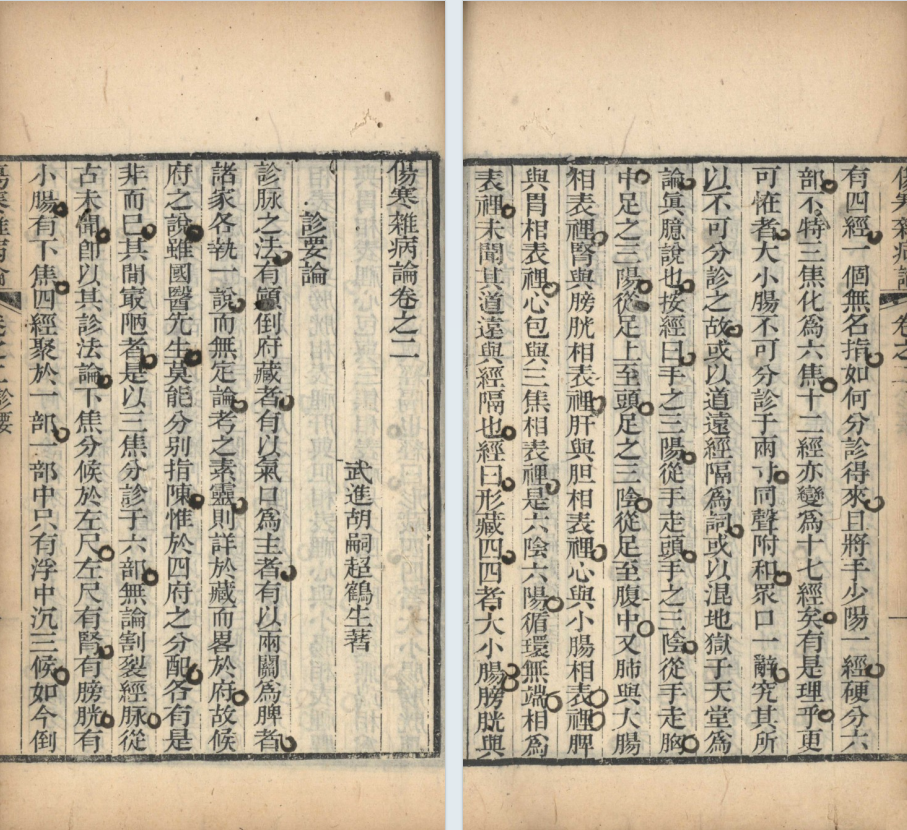 傷寒雜病論卷之二
武進胡嗣超鶴生著
診要論
診脉之法有顚倒府藏者有以氣口爲主者有以兩關爲脾者
諸家各執一說而無定論考之素靈則詳於藏而畧於府故候
府之說雖國醫先生莫能分別指陳惟於四府之分配各有是
非而已其間最陋者是以三焦分診于六部無論割裂經脉從
古未聞卽以其診法論下焦分候於左尺左尺有腎有膀胱有
小腸有下焦四經聚於一部一部中只有浮中沉三候如今倒
傷寒雜病論 卷之二 診要
傷寒雜病論 卷之
有四經一個無名指如何分診得來且將手少陽一經硬分六
部不特三焦化爲六焦十二經亦變爲十七經矣有是理乎更
可恠者大小腸不可分診于兩寸同聲附和眾口一辭究其所
以不可分診之故或以道遠經隔爲詞或以混地獄于天堂爲
論眞臆說也按經曰手之三陽從手走頭手之三陰從手走胸
中足之三陽從足上至頭足之三陰從足至腹中又肺與大腸
相表裡腎與膀胱相表裡肝與胆相表裡心與小腸相表裡脾
與胃相表裡心包與三焦相表裡是六陰六陽循環無端相爲
表裡未聞其道遠與經隔也經曰形藏四四者大小腸膀胱與